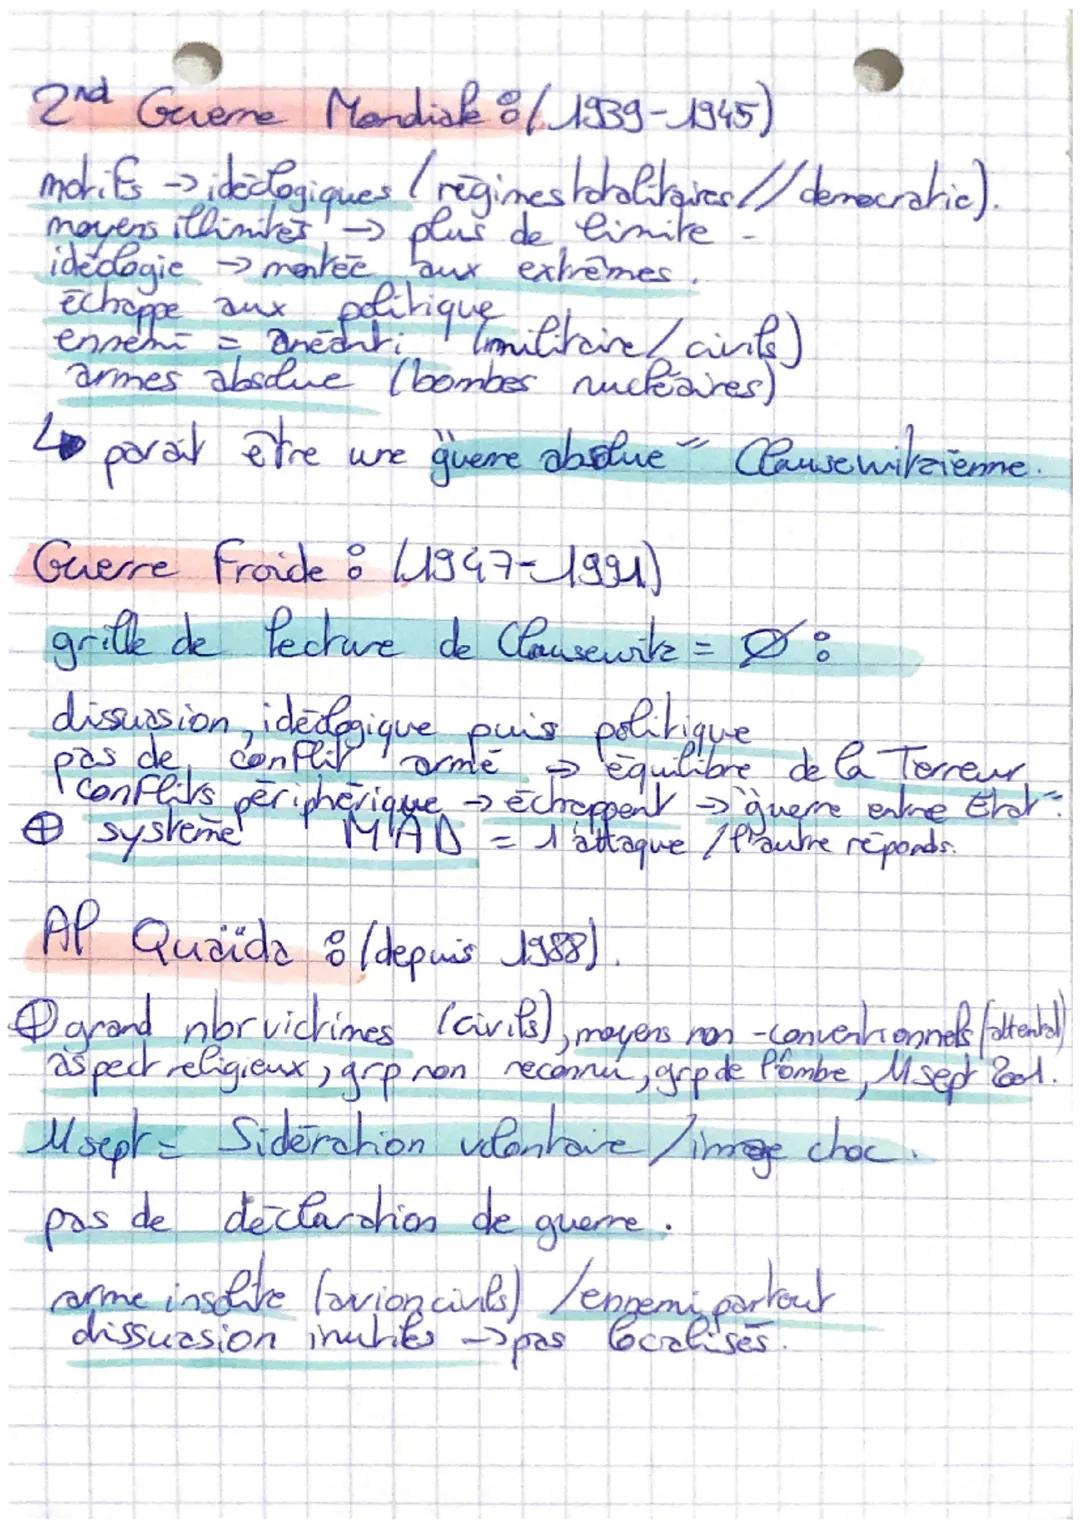 2nd Guerre Mondiale : (1939-1945)
motifs → idéologiques (régimes totalitaires // démocratie).
moyens illimités → plus de limite -
idéologie → montée aux extrêmes.
échappe aux politique
ennemi = anéanti (militaire/civils)
armes absolue (bombes nucléaires)
↳ parait être une "guerre absolue" Clausewitzienne.
Guerre Froide : (1947-1991)
grille de lecture de Clausewitz = Ø :
dissuasion, idéologique puis politique
pas de conflit armé ⇒ équilibre de la Terreur
conflits périphérique → échappent → "guerre entre État".
⊕ système MAD = 1 attaque / l'autre réponds.
Al Quaïda : (depuis 1988).
⊕ grand nbr victimes (civils), moyens non-conventionnels (attentat)
aspect religieux, grp non reconnu, grp de l'ombre, 11 sept 2001.
11 sept = Sidération volontaire / image choc.
pas de déclaration de guerre.
arme insolite (avion civils) / ennemi partout
dissuasion inutiles → pas localisés.